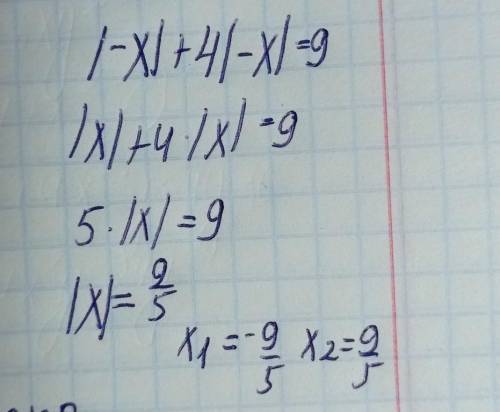 |-x|+4|-x|=9
|x|+4·|x|=9
5·|x|=9
|x|=9/5
x1=-9/5 x2=9/5